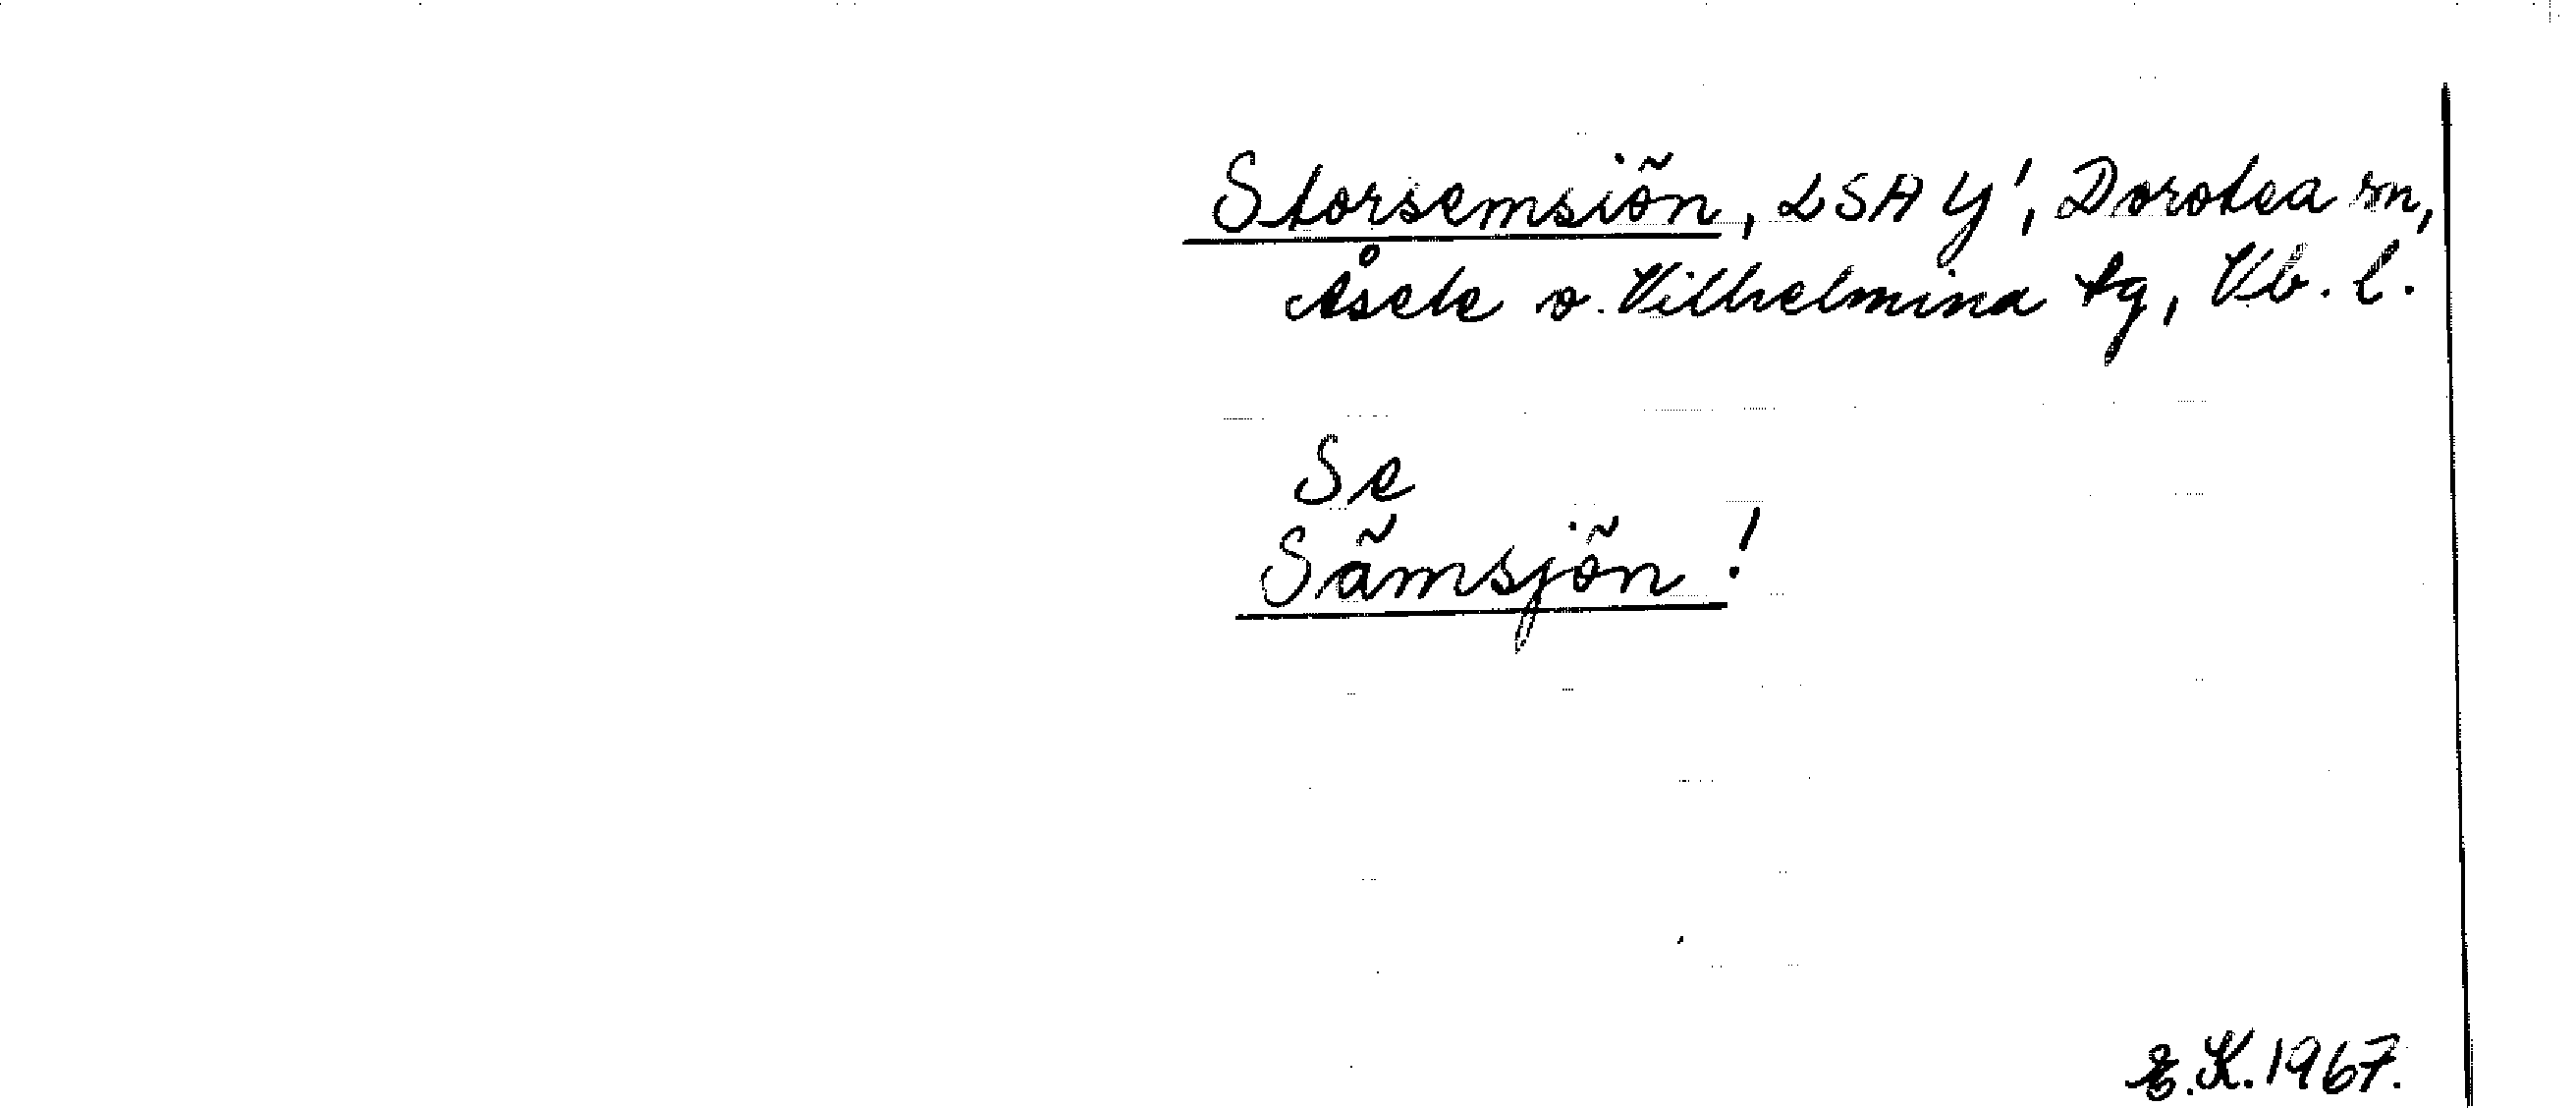 Storsemsiön, LSA Y', Dorotea sn,
Åsele o. Vilhelmina tg, Vb. l.
Se
Sämsjön!
E.K. 1967.